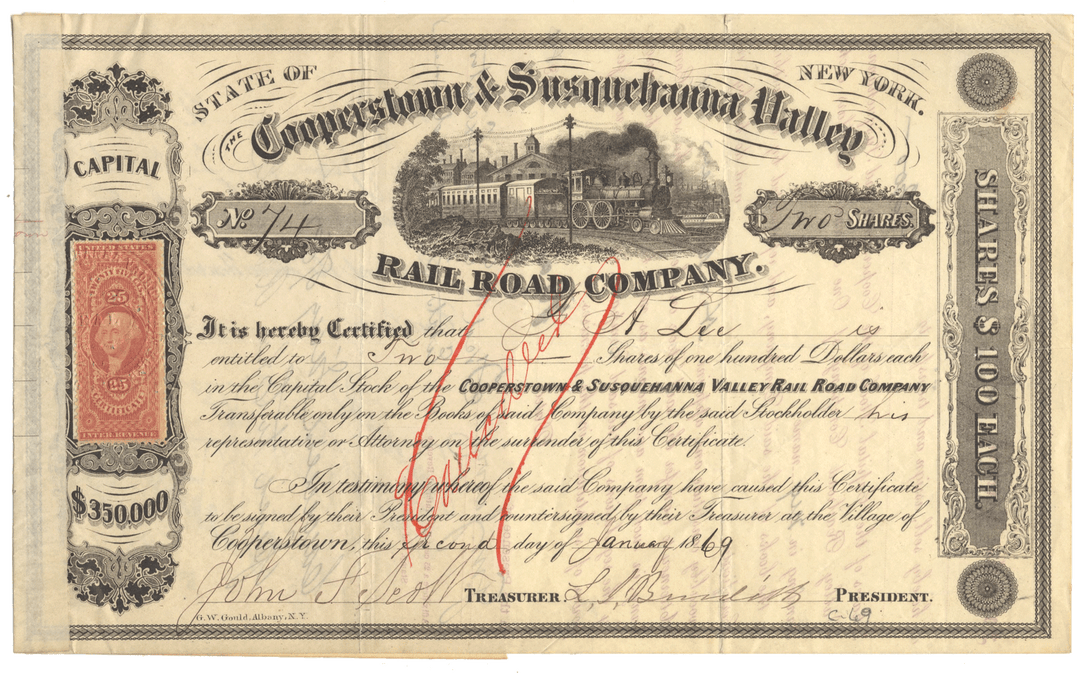 STATE OF NEW YORK.
THE Cooperstown & Susquehanna Valley
RAIL ROAD COMPANY.
CAPITAL
$350,000
No. 74
Two SHARES.
SHARES $100 EACH.
UNITED STATES
TWENTY FIVE CENTS
25
25
CERTIFICATE
INTER. REVENUE
It is hereby Certified that A Lee is
entitled to Two Shares of one hundred Dollars each
in the Capital Stock of the COOPERSTOWN & SUSQUEHANNA VALLEY RAIL ROAD COMPANY
Transferable only on the Books of said Company by the said Stockholder his
representative or Attorney on the surrender of this Certificate.
In testimony whereof the said Company have caused this Certificate
to be signed by their President and countersigned by their Treasurer at the Village of
Cooperstown, this second day of January 1869
Cancelled
John F Scott TREASURER PRESIDENT.
G.W. Gould, Albany, N.Y.
C-69